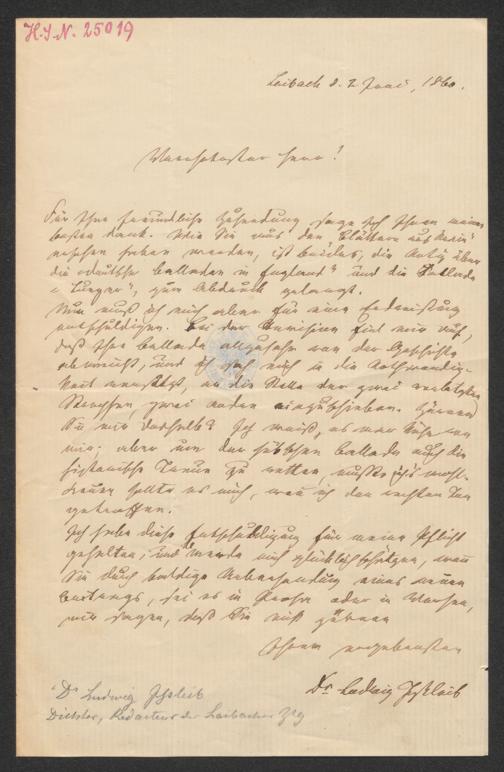 H.I.N. 25019
Laibach d. 2 Juni, 1860.
Verehrtester Herr!
Für Ihre freundliche Zusendung sage ich Ihnen meinen
besten Dank. Wie Sie aus den Blättern aus Krain
ersehen haben werden, ist beides, die Notiz über
die deutsche Balladen in England" und die Ballade
gelangt.
Nun muß ich mich aber für eine
entschuldigen. Bei der Revision fiel mir auf,
daß Ihre Ballade von der Geschichte
abweicht, und ich sah mich in die Nothwendig-
keit versetzt, an die Stelle der zwei verletzten
Strophen, zwei andere einzuschieben. Zürnen
Sie mir deshalb? Ich weiß, es war kühn von
mir; aber um der hübschen Ballade auch die
historische Treue zu retten mußte ich's wohl.
Freuen sollte es mich, wenn ich den rechten Ton
getroffen.
Ich habe diese Entschuldigung für meine Pflicht
gehalten, und werde mich glücklich schätzen, wenn
Sie durch baldige Uebersendung eines neuen
Beitrags, sei es in Prosa oder in Versen,
mir sagen, daß Sie nicht zürnen
Ihrem ergebensten
Dr. Ludwig Ißleib
Dr Ludwig Ißleib
Dichter, Redacteur der Laibacher Ztg